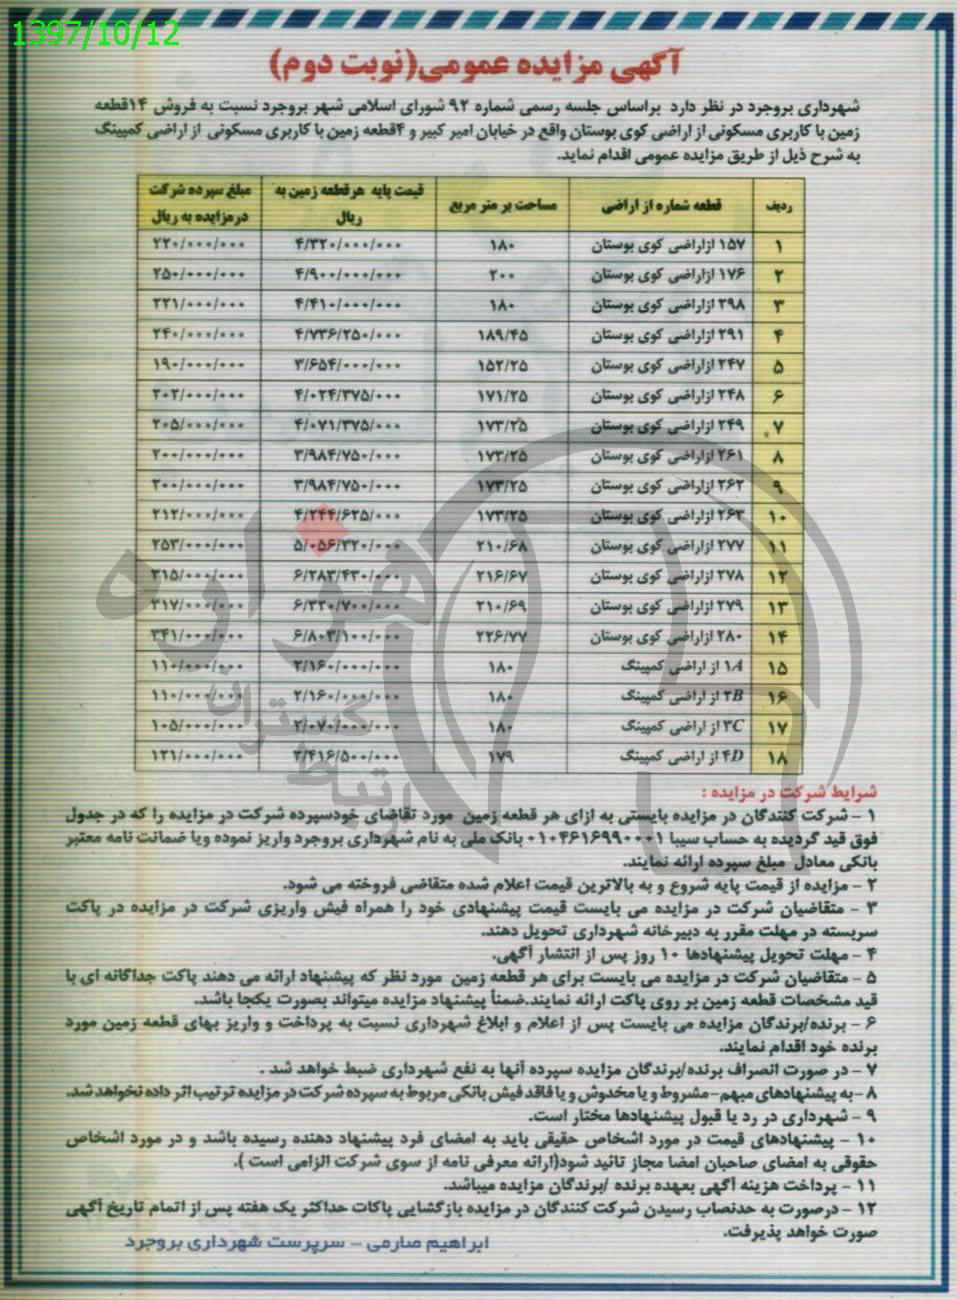 1397/10/12
آگهی مزایده عمومی(نوبت دوم)
شهرداری بروجرد در نظر دارد براساس جلسه رسمی شماره ۹۲ شورای اسلامی شهر بروجرد نسبت به فروش ۱۴قطعه
زمین با کاربری مسکونی از اراضی کوی بوستان واقع در خیابان امیر کبیر و ۴قطعه زمین با کاربری مسکونی از اراضی کمپینگ
به شرح ذیل از طریق مزایده عمومی اقدام نماید.
ردیف قطعه شماره از اراضی مساحت بر متر مربع قیمت پایه هرقطعه زمین به ریال مبلغ سپرده شرکت درمزایده به ریال
۱ ۱۵۷ ازاراضی کوی بوستان ۱۸۰ ۴/۳۲۰/۰۰۰/۰۰۰ ۲۲۰/۰۰۰/۰۰۰
۲ ۱۷۶ ازاراضی کوی بوستان ۲۰۰ ۴/۹۰۰/۰۰۰/۰۰۰ ۲۵۰/۰۰۰/۰۰۰
۳ ۲۹۸ ازاراضی کوی بوستان ۱۸۰ ۴/۴۱۰/۰۰۰/۰۰۰ ۲۲۱/۰۰۰/۰۰۰
۴ ۲۹۱ ازاراضی کوی بوستان ۱۸۹/۴۵ ۴/۷۳۶/۲۵۰/۰۰۰ ۲۴۰/۰۰۰/۰۰۰
۵ ۲۴۷ ازاراضی کوی بوستان ۱۵۲/۲۵ ۳/۶۵۴/۰۰۰/۰۰۰ ۱۹۰/۰۰۰/۰۰۰
۶ ۲۴۸ ازاراضی کوی بوستان ۱۷۱/۲۵ ۴/۰۲۴/۳۷۵/۰۰۰ ۲۰۲/۰۰۰/۰۰۰
۷ ۲۴۹ ازاراضی کوی بوستان ۱۷۳/۲۵ ۴/۰۷۱/۳۷۵/۰۰۰ ۲۰۵/۰۰۰/۰۰۰
۸ ۲۶۱ ازاراضی کوی بوستان ۱۷۳/۲۵ ۳/۹۸۴/۷۵۰/۰۰۰ ۲۰۰/۰۰۰/۰۰۰
۹ ۲۶۲ ازاراضی کوی بوستان ۱۷۳/۲۵ ۳/۹۸۴/۷۵۰/۰۰۰ ۲۰۰/۰۰۰/۰۰۰
۱۰ ۲۶۳ ازاراضی کوی بوستان ۱۷۳/۲۵ ۴/۲۴۴/۶۲۵/۰۰۰ ۲۱۲/۰۰۰/۰۰۰
۱۱ ۲۷۷ ازاراضی کوی بوستان ۲۱۰/۶۸ ۵/۰۵۶/۳۲۰/۰۰۰ ۲۵۳/۰۰۰/۰۰۰
۱۲ ۲۷۸ ازاراضی کوی بوستان ۲۱۶/۶۷ ۶/۲۸۳/۴۳۰/۰۰۰ ۳۱۵/۰۰۰/۰۰۰
۱۳ ۲۷۹ ازاراضی کوی بوستان ۲۱۰/۶۹ ۶/۳۲۰/۷۰۰/۰۰۰ ۳۱۷/۰۰۰/۰۰۰
۱۴ ۲۸۰ ازاراضی کوی بوستان ۲۲۶/۷۷ ۶/۸۰۳/۱۰۰/۰۰۰ ۳۴۱/۰۰۰/۰۰۰
۱۵ ۱A از اراضی کمپینگ ۱۸۰ ۲/۱۶۰/۰۰۰/۰۰۰ ۱۱۰/۰۰۰/۰۰۰
۱۶ ۲B از اراضی کمپینگ ۱۸۰ ۲/۱۶۰/۰۰۰/۰۰۰ ۱۱۰/۰۰۰/۰۰۰
۱۷ ۳C از اراضی کمپینگ ۱۸۰ ۲/۰۷۰/۰۰۰/۰۰۰ ۱۰۵/۰۰۰/۰۰۰
۱۸ ۴D از اراضی کمپینگ ۱۷۹ ۲/۴۱۶/۵۰۰/۰۰۰ ۱۲۱/۰۰۰/۰۰۰
هزاره
ارتباط گستران
شرایط شرکت در مزایده :
۱ – شرکت کنندگان در مزایده بایستی به ازای هر قطعه زمین مورد تقاضای خودسپرده شرکت در مزایده را که در جدول
فوق قید گردیده به حساب سیبا ۰۱۰۴۶۱۶۹۹۰۰۰۱ بانک ملی به نام شهرداری بروجرد واریز نموده ویا ضمانت نامه معتبر
بانکی معادل مبلغ سپرده ارائه نمایند.
۲ – مزایده از قیمت پایه شروع و به بالاترین قیمت اعلام شده متقاضی فروخته می شود.
۳ – متقاضیان شرکت در مزایده می بایست قیمت پیشنهادی خود را همراه فیش واریزی شرکت در مزایده در پاکت
سربسته در مهلت مقرر به دبیرخانه شهرداری تحویل دهند.
۴ – مهلت تحویل پیشنهادها ۱۰ روز پس از انتشار آگهی.
۵ – متقاضیان شرکت در مزایده می بایست برای هر قطعه زمین مورد نظر که پیشنهاد ارائه می دهند پاکت جداگانه ای با
قید مشخصات قطعه زمین بر روی پاکت ارائه نمایند.ضمناً پیشنهاد مزایده میتواند بصورت یکجا باشد.
۶ – برنده/برندگان مزایده می بایست پس از اعلام و ابلاغ شهرداری نسبت به پرداخت و واریز بهای قطعه زمین مورد
برنده خود اقدام نمایند.
۷ – در صورت انصراف برنده/برندگان مزایده سپرده آنها به نفع شهرداری ضبط خواهد شد .
۸ – به پیشنهادهای مبهم – مشروط و یا مخدوش و یا فاقد فیش بانکی مربوط به سپرده شرکت در مزایده ترتیب اثر داده نخواهد شد.
۹ – شهرداری در رد یا قبول پیشنهادها مختار است.
۱۰ – پیشنهادهای قیمت در مورد اشخاص حقیقی باید به امضای فرد پیشنهاد دهنده رسیده باشد و در مورد اشخاص
حقوقی به امضای صاحبان امضا مجاز تائید شود(ارائه معرفی نامه از سوی شرکت الزامی است ).
۱۱ – پرداخت هزینه آگهی بعهده برنده /برندگان مزایده میباشد.
۱۲ – درصورت به حدنصاب رسیدن شرکت کنندگان در مزایده بازگشایی پاکات حداکثر یک هفته پس از اتمام تاریخ آگهی
صورت خواهد پذیرفت.
ابراهیم صارمی – سرپرست شهرداری بروجرد